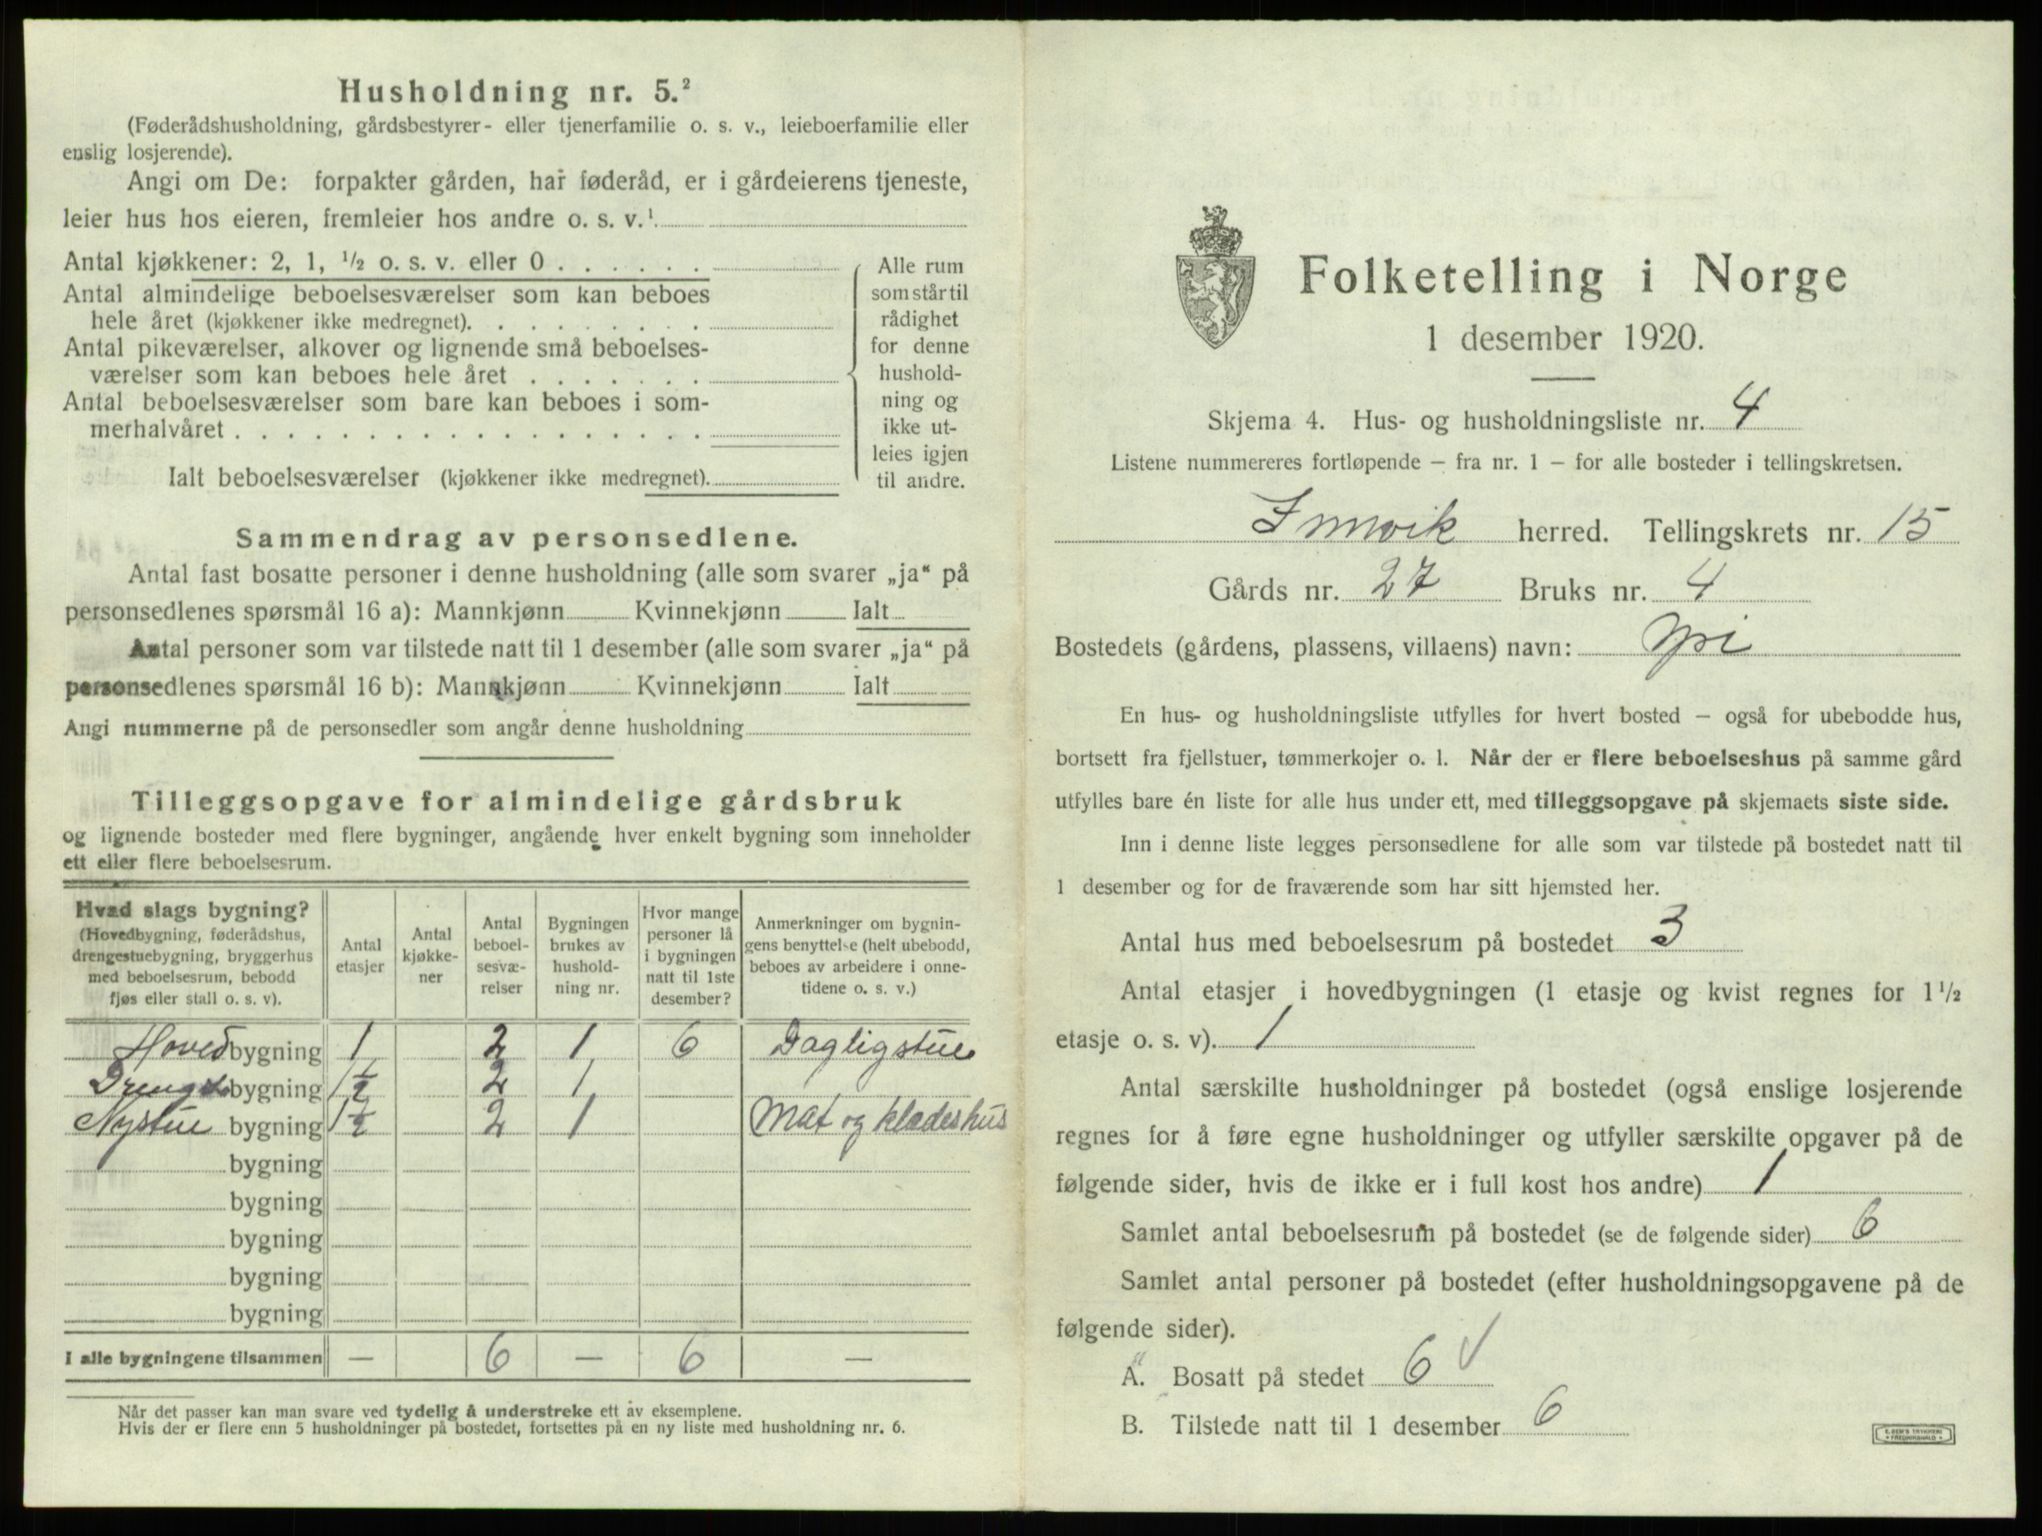 Husholdning nr. 5.²
(Føderådshusholdning, gårdsbestyrer- eller tjenerfamilie o. s. v., leieboerfamilie eller
enslig losjerende).
Angi om De: forpakter gården, har føderåd, er i gårdeierens tjeneste,
leier hus hos eieren, fremleier hos andre o. s. v.¹
Antal kjøkkener: 2, 1, ½ o. s. v. eller 0 . . . . . .
Antal almindelige beboelsesværelser som kan beboes
hele året (kjøkkener ikke medregnet). . . . . . . . .
Antal pikeværelser, alkover og lignende små beboelses-
værelser som kan beboes hele året . . . . . . .
Antal beboelsesværelser som bare kan beboes i som-
merhalvåret . . . . . . . . . . . . . . . . . .
Ialt beboelsesværelser (kjøkkener ikke medregnet).
Alle rum
som står til
rådighet
for denne
hushold-
ning og
ikke ut-
leies igjen
til andre.
Sammendrag av personsedlene.
Antal fast bosatte personer i denne husholdning (alle som svarer „ja“ på
personsedlenes spørsmål 16 a): Mannkjønn Kvinnekjønn Ialt
Antal personer som var tilstede natt til 1 desember (alle som svarer „ja“ på
personsedlenes spørsmål 16 b): Mannkjønn Kvinnekjønn Ialt
Angi nummerne på de personsedler som angår denne husholdning
Tilleggsopgave for almindelige gårdsbruk
og lignende bosteder med flere bygninger, angående hver enkelt bygning som inneholder
ett eller flere beboelsesrum.
Hvad slags bygning?
(Hovedbygning, føderådshus,
drengestuebygning, bryggerhus
med beboelsesrum, bebodd
fjøs eller stall o. s. v).
Antal
etasjer
Antal
kjøkke-
ner
Antal
beboel-
sesvæ-
relser
Bygningen
brukes av
hushold-
ning nr.
Hvor mange
personer lå
i bygningen
natt til 1ste
desember?
Anmerkninger om bygnin-
gens benyttelse (helt ubebodd,
beboes av arbeidere i onne-
tidene o. s. v.)
Hoved bygning 1 2 1 6 Dagligstue
bygning 1½ 2 1
Nystue bygning 1½ 2 1 Mat og klædeshus
bygning
bygning
bygning
bygning
bygning
I alle bygningene tilsammen — 6 — 6 —
Når det passer kan man svare ved tydelig å understreke ett av eksemplene.
Hvis der er flere enn 5 husholdninger på bostedet, fortsettes på en ny liste med husholdning nr. 6.
Folketelling i Norge
1 desember 1920.
Skjema 4. Hus- og husholdningsliste nr. 4
Listene nummereres fortløpende – fra nr. 1 – for alle bosteder i tellingskretsen.
Innvik herred. Tellingskrets nr. 15
Gårds nr. 27 Bruks nr. 4
Bostedets (gårdens, plassens, villaens) navn: Yri
En hus- og husholdningsliste utfylles for hvert bosted – også for ubebodde hus,
bortsett fra fjellstuer, tømmerkojer o. l. Når der er flere beboelseshus på samme gård
utfylles bare én liste for alle hus under ett, med tilleggsopgave på skjemaets siste side.
Inn i denne liste legges personsedlene for alle som var tilstede på bostedet natt til
1 desember og for de fraværende som har sitt hjemsted her.
Antal hus med beboelsesrum på bostedet 3
Antal etasjer i hovedbygningen (1 etasje og kvist regnes for 1½
etasje o. s. v). 1
Antal særskilte husholdninger på bostedet (også enslige losjerende
regnes for å føre egne husholdninger og utfyller særskilte opgaver på de
følgende sider, hvis de ikke er i full kost hos andre) 1
Samlet antal beboelsesrum på bostedet (se de følgende sider) 6
Samlet antal personer på bostedet (efter husholdningsopgavene på de
følgende sider).
A. Bosatt på stedet 6 √
B. Tilstede natt til 1 desember 6
E. SEM'S TRYKKERI
FREDRIKSHALD